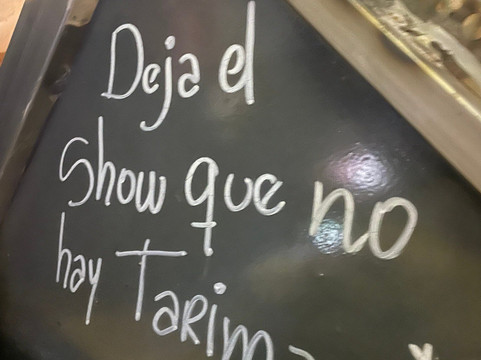 Deja el
Show que no
hay Tarima